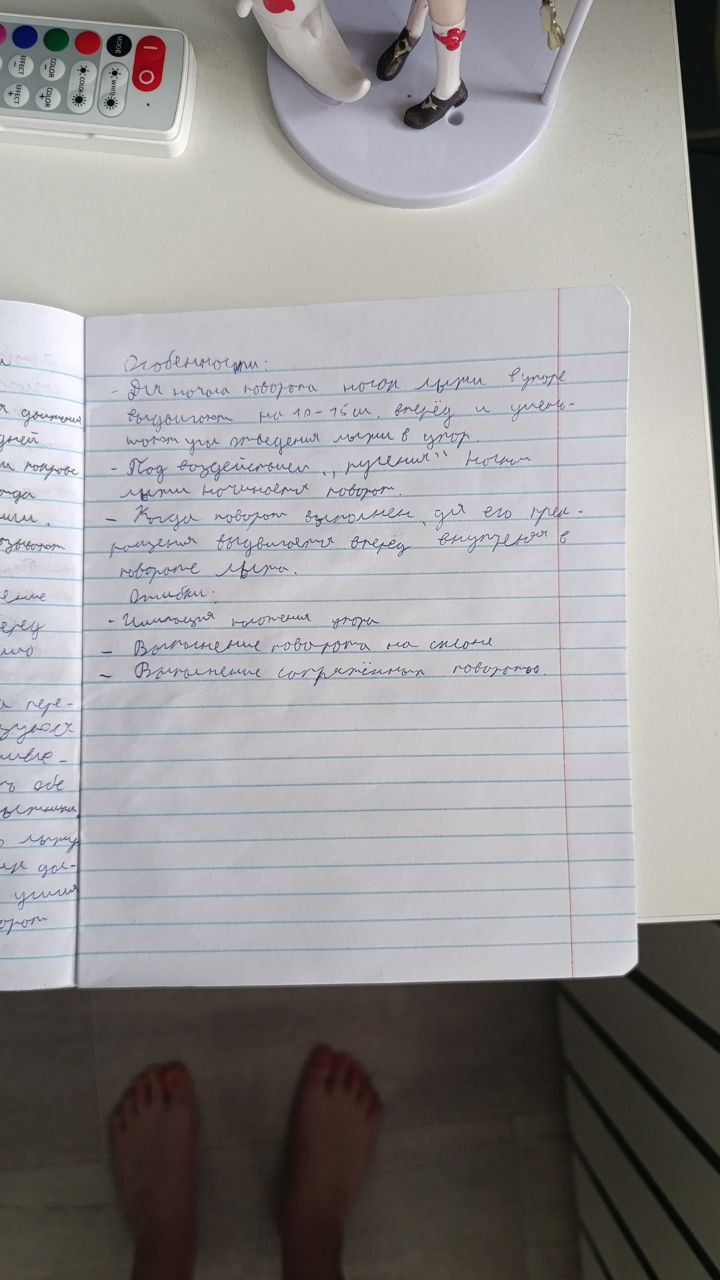 MODE
WHITE
COLOR
COLOR
COLOR
EFFECT
EFFECT
Особенности:
- Для начала поворота носок лыжи в упоре
выдвигают на 10-15 см. вперёд и умень-
шают угол отведения лыжи в упор.
- Под воздействием ,,руления" носком
лыжи начинается поворот.
- Когда поворот выполнен, для его прек-
ращения выдвигается вперёд внутреняя в
повороте лыжа.
Ошибки:
- Имитация положения упора
- Выполнение поворота на склоне
- Выполнение сопряжённых поворотов.
движения
дней
покрове
зывают
ение
еред
пере-
обе
лыжу
дол-
усилия
орот